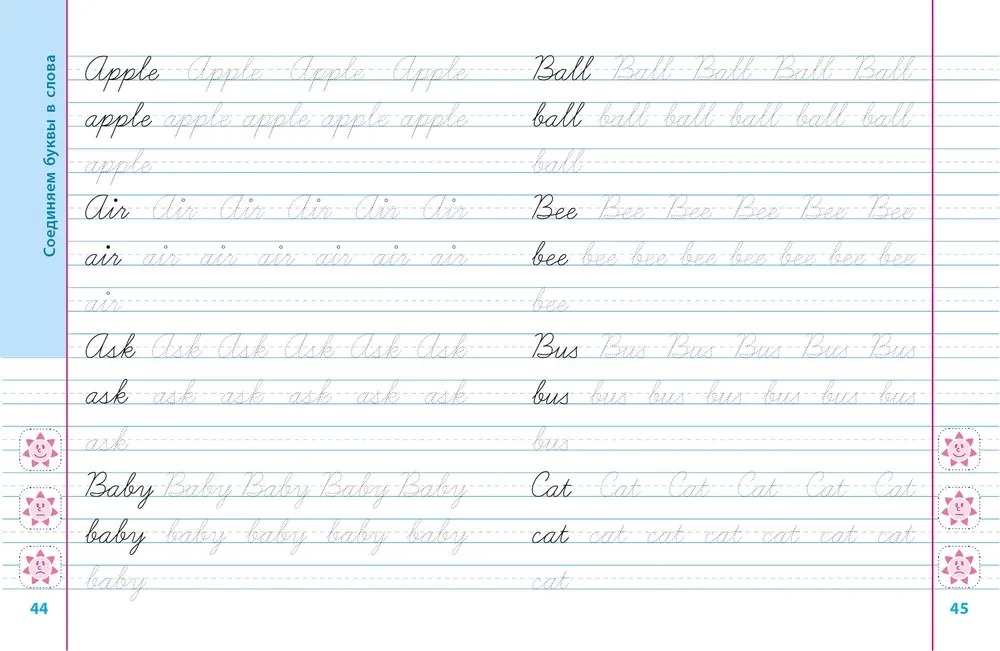 Соединяем буквы в слова
Apple Apple Apple Apple
apple apple apple apple apple
apple
Air Air Air Air Air Air
air air air air air air air
air
Ask Ask Ask Ask Ask Ask
ask ask ask ask ask ask
ask
Baby Baby Baby Baby Baby
baby baby baby baby baby
baby
44
Ball Ball Ball Ball Ball
ball ball ball ball ball ball
ball
Bee Bee Bee Bee Bee Bee
bee bee bee bee bee bee bee bee
bee
Bus Bus Bus Bus Bus Bus
bus bus bus bus bus bus bus
bus
Cat Cat Cat Cat Cat Cat
cat cat cat cat cat cat cat
cat
45